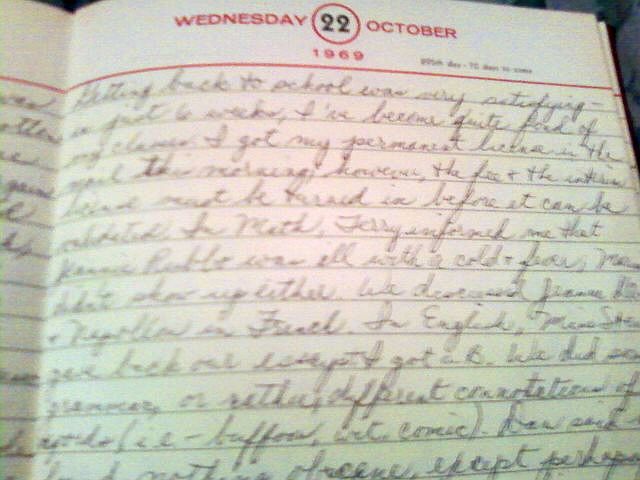 WEDNESDAY 22 OCTOBER
1969
295th day - 70 days to come
Getting back to school was very satisfying -
in just 6 weeks, I've become quite fond of
my classes. I got my permanent license in the
mail this morning; however, the fee + the interim
license must be turned in before it can be
validated. In Math, Terry informed me that
Jeannie was ill with a cold + fever;
didn't show up either. We discussed Jeanne
+ Napoleon in French. In English, Miss
gave back our I got a B. We did
grammar, or rather, different connotations of
words (i.e. - buffoon, wit, comic). Dan said
nothing obscene, except perhaps